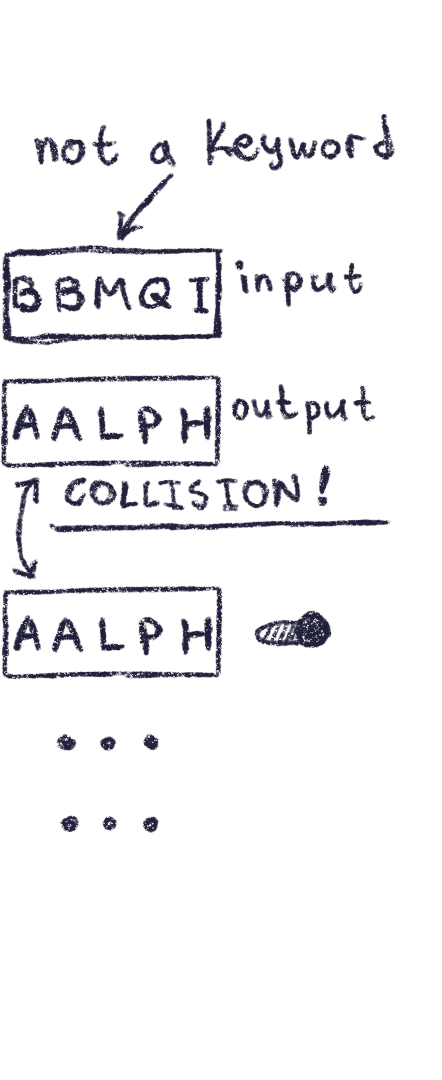 not a keyword
BBMQI input
AALPH output
COLLISION!
AALPH
...
...